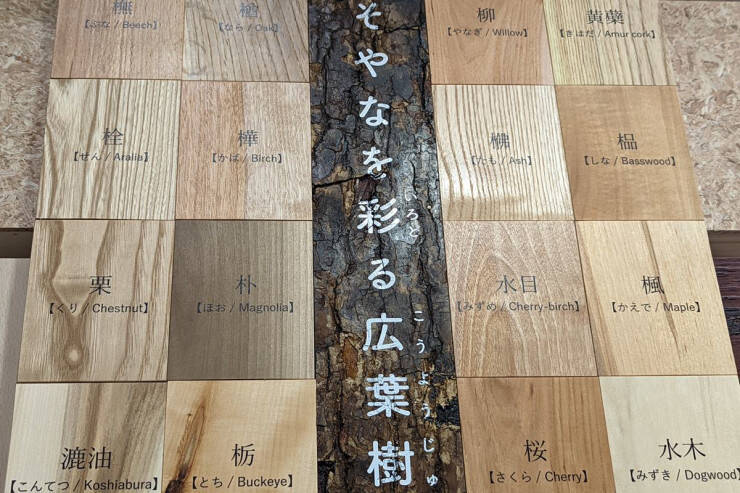 橅
【ぶな / Beech】
楢
【なら / Oak】
栓
【せん / Aralia】
樺
【かば / Birch】
栗
【くり / Chestnut】
朴
【ほお / Magnolia】
漉油
【こんてつ / Koshiabura】
栃
【とち / Buckeye】
そやなを彩る広葉樹
いろど
こうようじゅ
柳
【やなぎ / Willow】
黄蘗
【きはだ / Amur cork】
梻
【たも / Ash】
榀
【しな / Basswood】
水目
【みずめ / Cherry-birch】
楓
【かえで / Maple】
桜
【さくら / Cherry】
水木
【みずき / Dogwood】